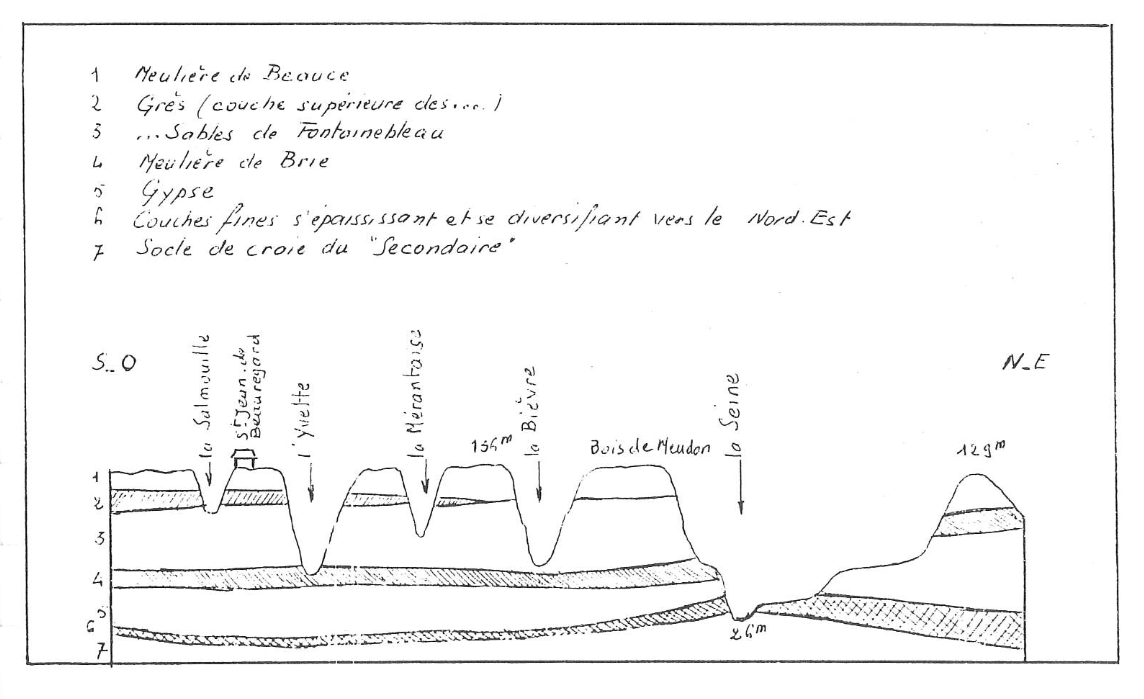 1 Meulière de Beauce
2 Grès (couche supérieure des....)
3 ...Sables de Fontainebleau
4 Meulière de Brie
5 Gypse
6 Couches fines s'épaississant et se diversifiant vers le Nord.Est
7 Socle de craie du "Secondaire"
S_O
la Salmouille
St Jean.de
Beauregard
l'Yvette
la Mérantaise
156m
la Bièvre
Bois de Meudon
la Seine
N_E
129m
1
2
3
4
5
6
7
26m